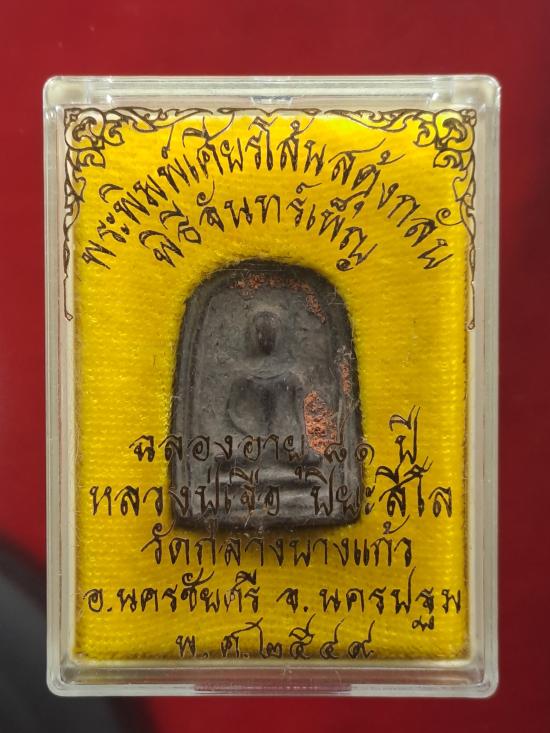 พระพิมพ์เศียรโล้นสดุ้งกลับ
พิธีจันทร์เพ็ญ
ฉลองอายุ ๘๑ ปี
หลวงปู่เจือ ปิยะสีโล
วัดกลางบางแก้ว
อ.นครชัยศรี จ.นครปฐม
พ.ศ.๒๕๔๙